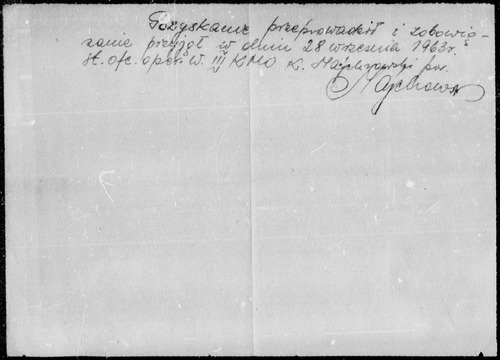 Pozyskanie przeprowadził i zobowią-
zanie przyjął w dniu 28 września 1963r.
st. ofc. oper. W. III KMO K. Majchrowski por.
Majchrowsk